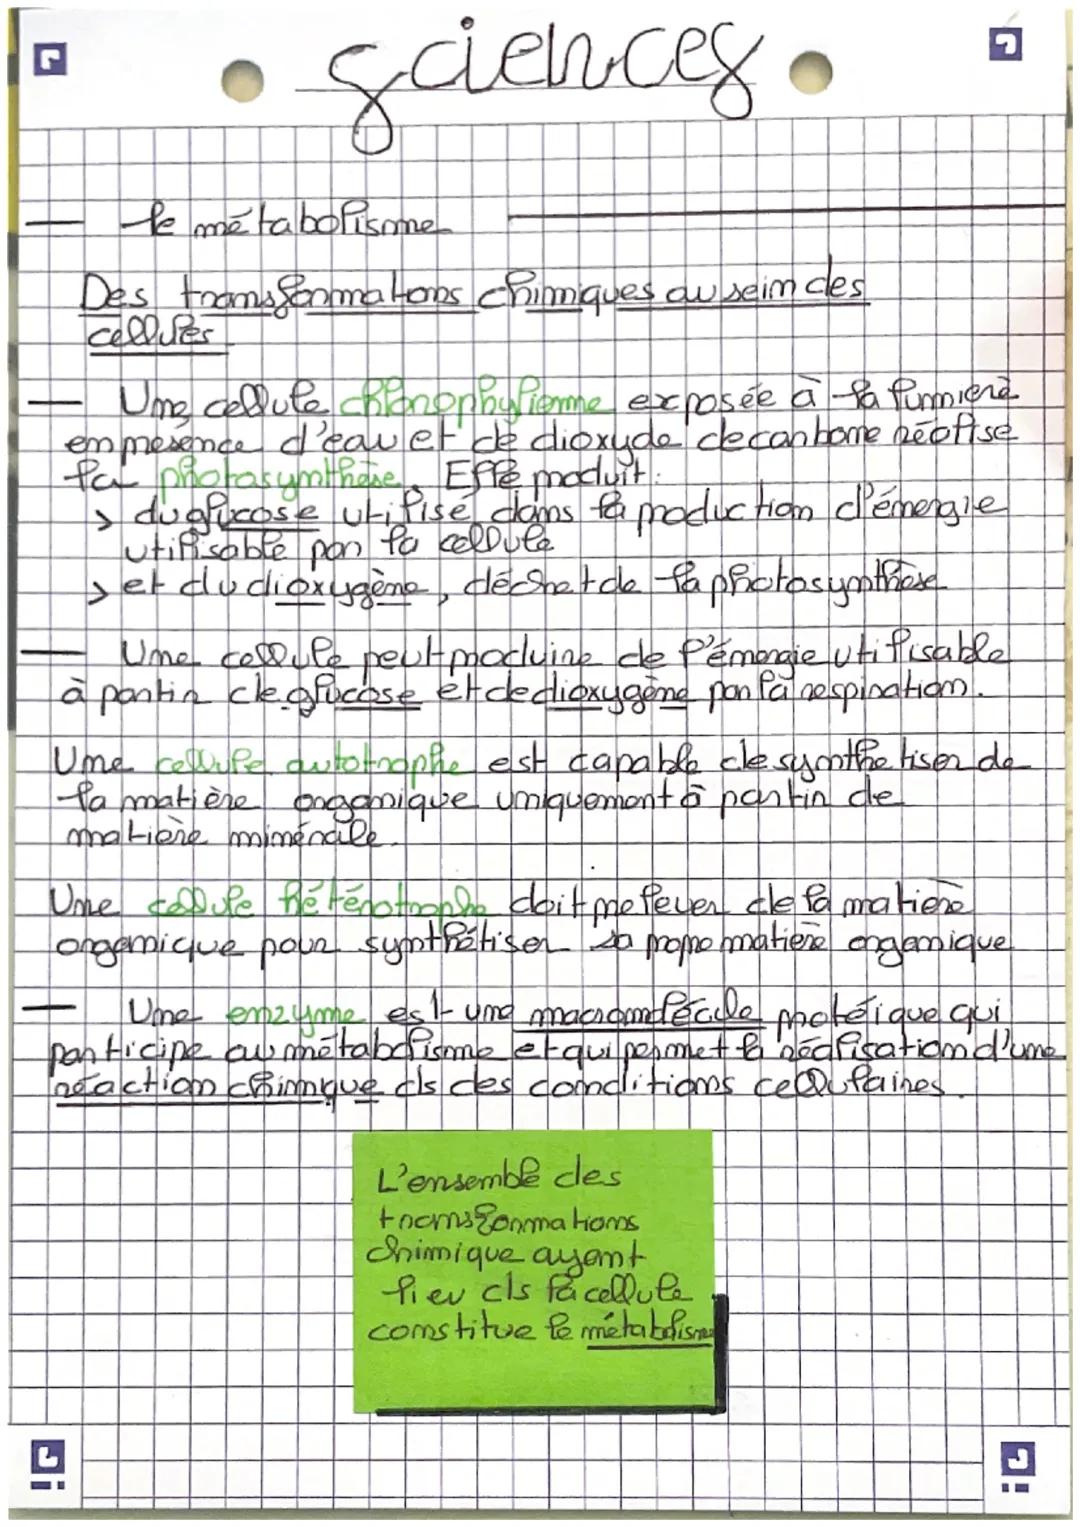 sciences
le métabolisme
Des transformations chimiques au sein des
cellules
Une cellule chlorophylienne exposée à la lumière
en présence d'eau et de dioxyde de carbone réalise
la photosynthèse. Elle produit :
> du glucose utilisé dans la production d'énergie
utilisable par la cellule
> et du dioxygène, déchet de la photosynthèse
Une cellule peut produire de l'énergie utilisable
à partir de glucose et de dioxygène par la respiration.
Une cellule autotrophe est capable de synthetiser de
la matière organique uniquement à partir de
matière minérale.
Une cellule hétérotrophe doit prelever de la matière
organique pour synthétiser sa propre matière organique
Une enzyme est une macromolécule protéique qui
participe au métabolisme et qui permet la réalisation d'une
réaction chimique ds des conditions cellulaires.
L'ensemble des
transformations
chimique ayant
lieu ds la cellule
constitue le métabolisme